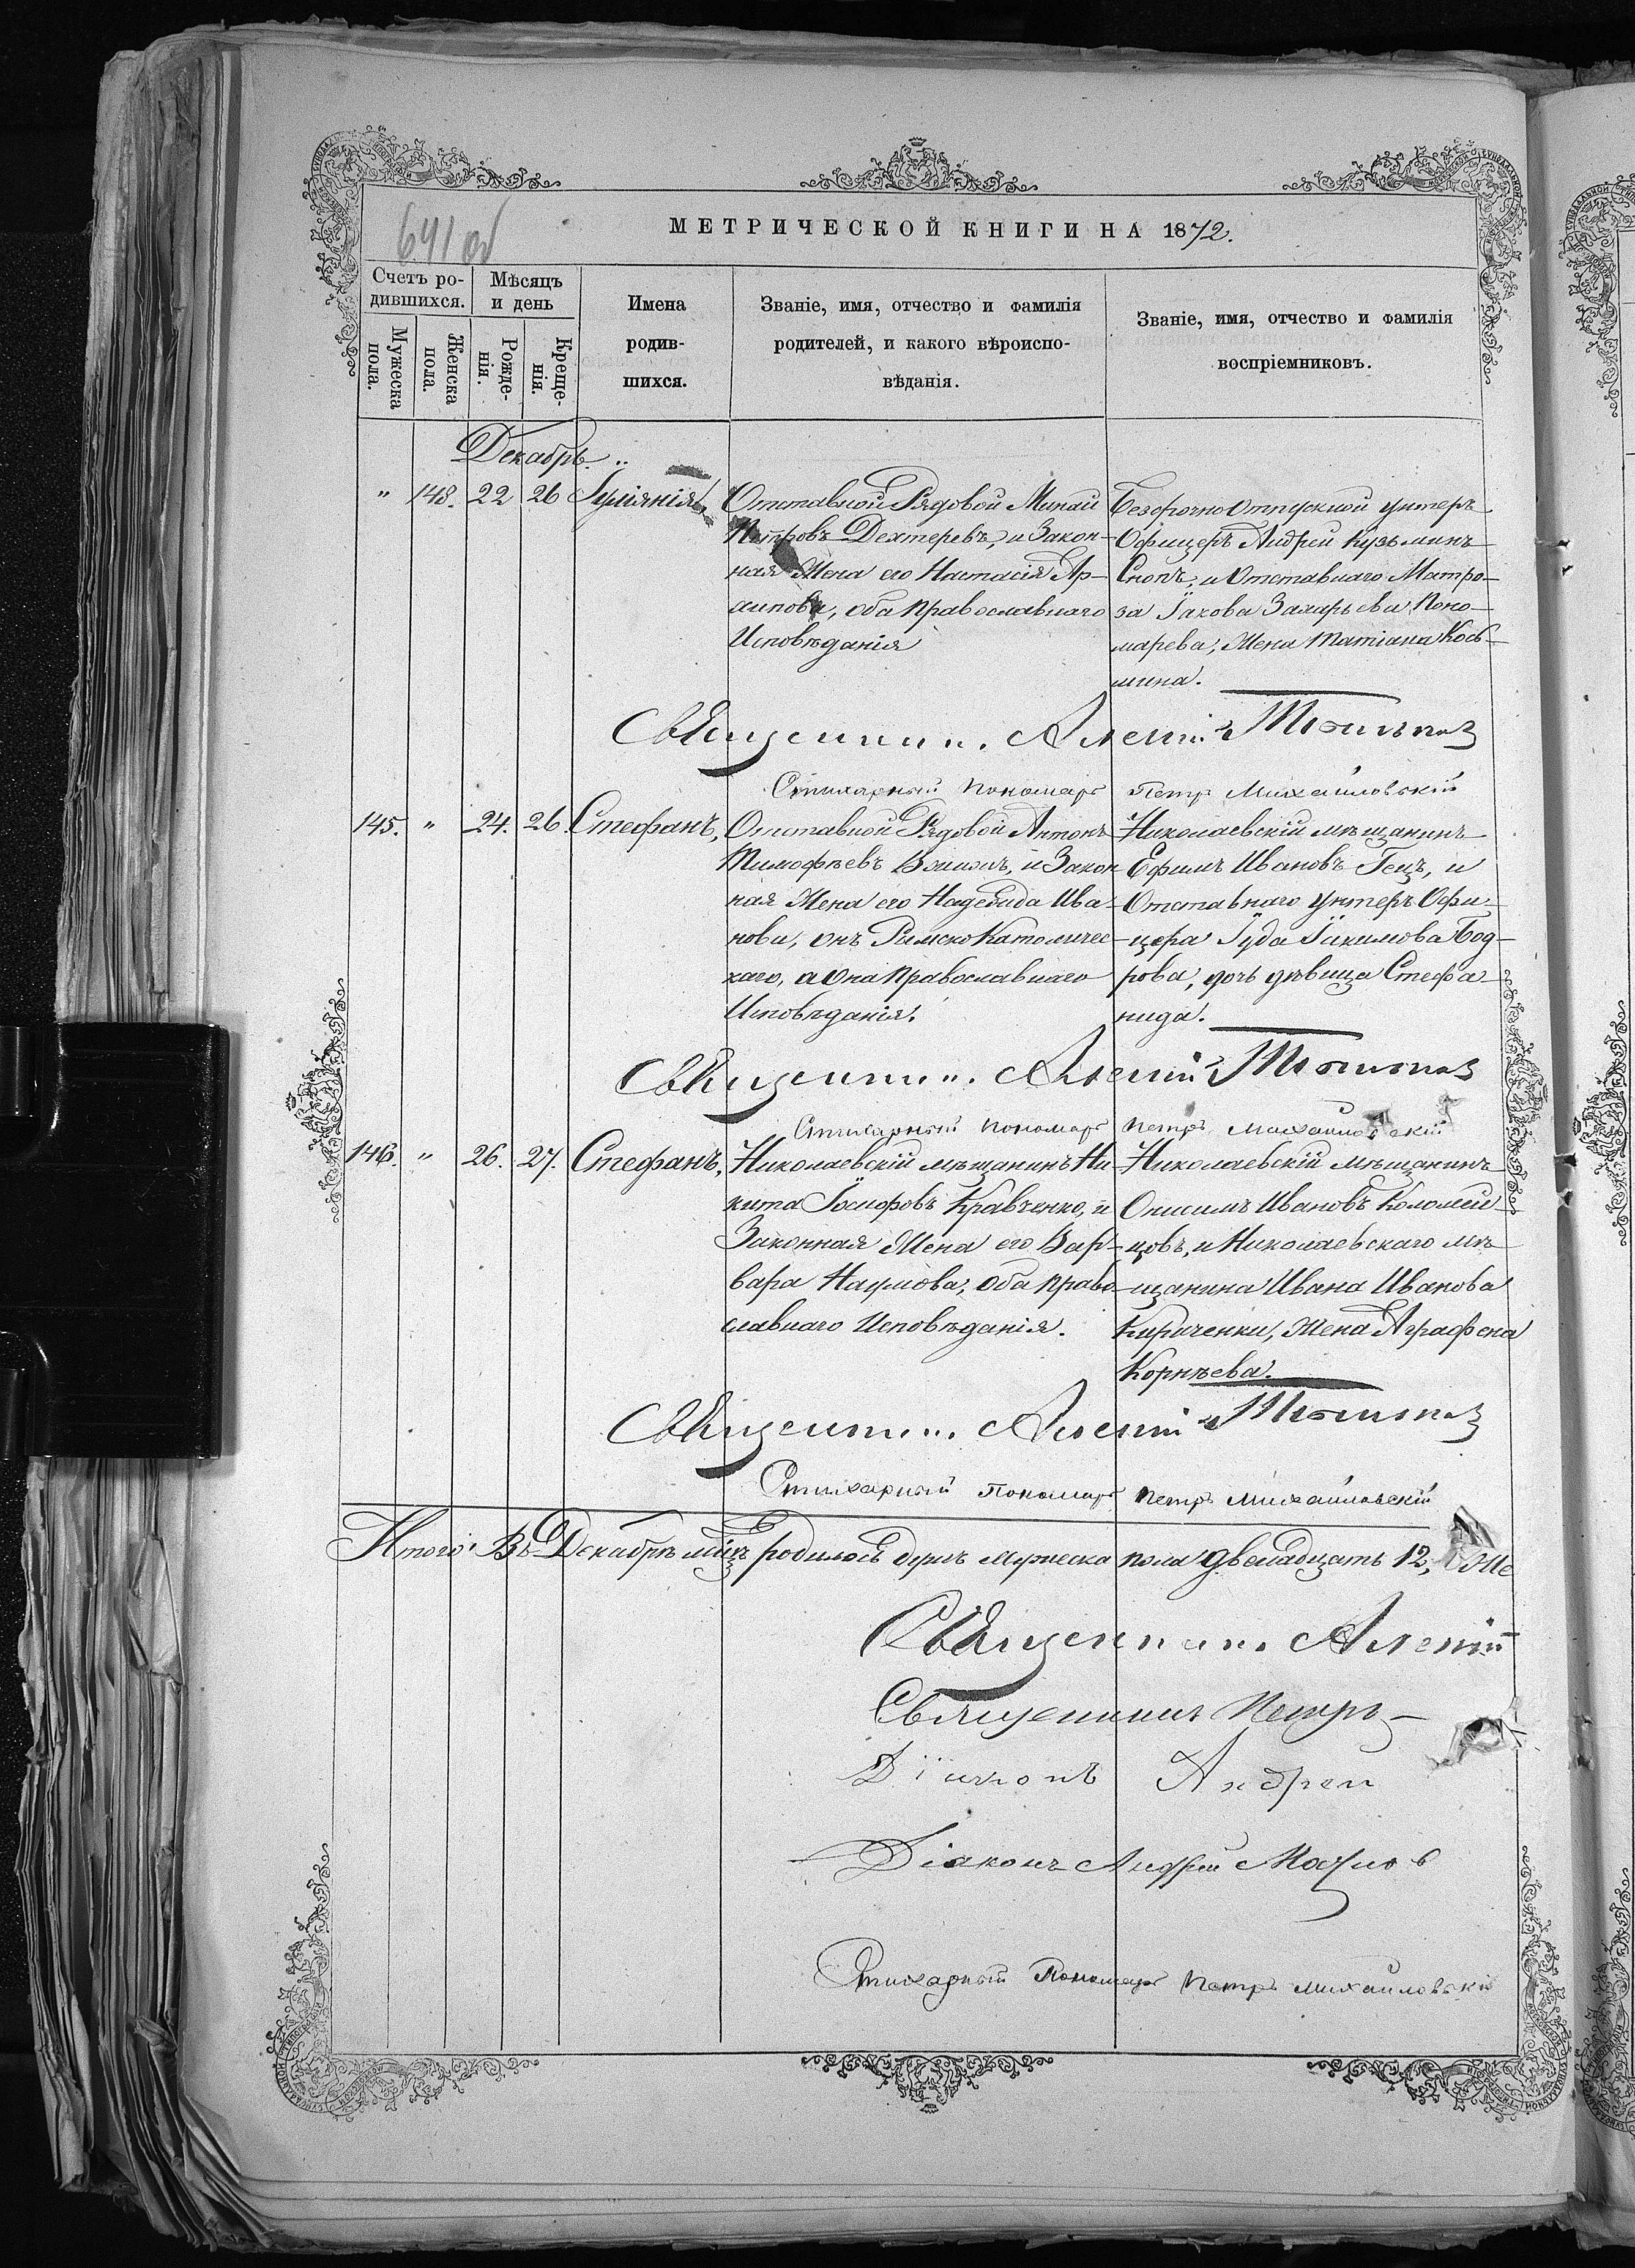 641 об
МЕТРИЧЕСКОЙ КНИГИ НА 1872.
Счетъ ро-
дившихся.
Мѣсяцъ
и день
Мужеска
пола.
Женска
пола.
Рожде-
нія.
Креще-
нія.
Имена
родив-
шихся.
Званіе, имя, отчество и фамилія
родителей, и какого вѣроиспо-
вѣданія.
Званіе, имя, отчество и фамилія
воспріемниковъ.
Декабрь.
" 148. 22 26 Іуліянія,
Отставной Рядовой Минай
Петровъ Дехтеревъ, и Закон-
ная Жена его Настасія Ар-
хипова, оба Православнаго
Исповѣданія
Безсрочноотпускной унтеръ
Офицеръ Андрей Кузьминъ
Снопъ, и Отставнаго Матро-
за Іакова Захарьева Поно-
марева, Жена Татіана Кось-
мина.
Священник. Алексій
Стихарный пономарь Петръ Михайловскій
145. " 24. 26 Стефанъ,
Отставной Рядовой Антонъ
Тимофѣевъ и Закон
ная Жена его Надежда Ива-
нова, онъ РимскоКатоличес-
каго, а она Православнаго
Исповѣданія.
Николаевскій мѣщанинъ
Ефимъ Ивановъ Гецъ, и
Отставнаго унтеръ Офи-
цера Іуда Іакимова Бод-
рова, дочь дѣвица Стефа-
нида.
Священник. Алексій
Стихарный пономарь Петръ Михайловскій
146. " 26. 27. Стефанъ,
Николаевскій мѣщанинъ Ни-
кита Іосифовъ Кравченко, и
Законная Жена его Вар-
вара Наумова, оба Право-
славнаго Исповѣданія.
Николаевскій мѣщанинъ
Онисимъ Ивановъ Коломей-
цовъ, и Николаевскаго мѣ-
щанина Ивана Иванова
Кириченки, Жена Аграфена
Корнѣева.
Священник. Алексій
Стихарный пономарь Петръ Михайловскій
Итого: Въ Декабрѣ мѣцѣ родилось душъ мужеска пола двенадцать 12, же
Священник. Алексій
Священникъ Петръ
Діаконъ Андрей
Діаконъ Андрей
Стихарный Пономарь Петръ Михайловскій